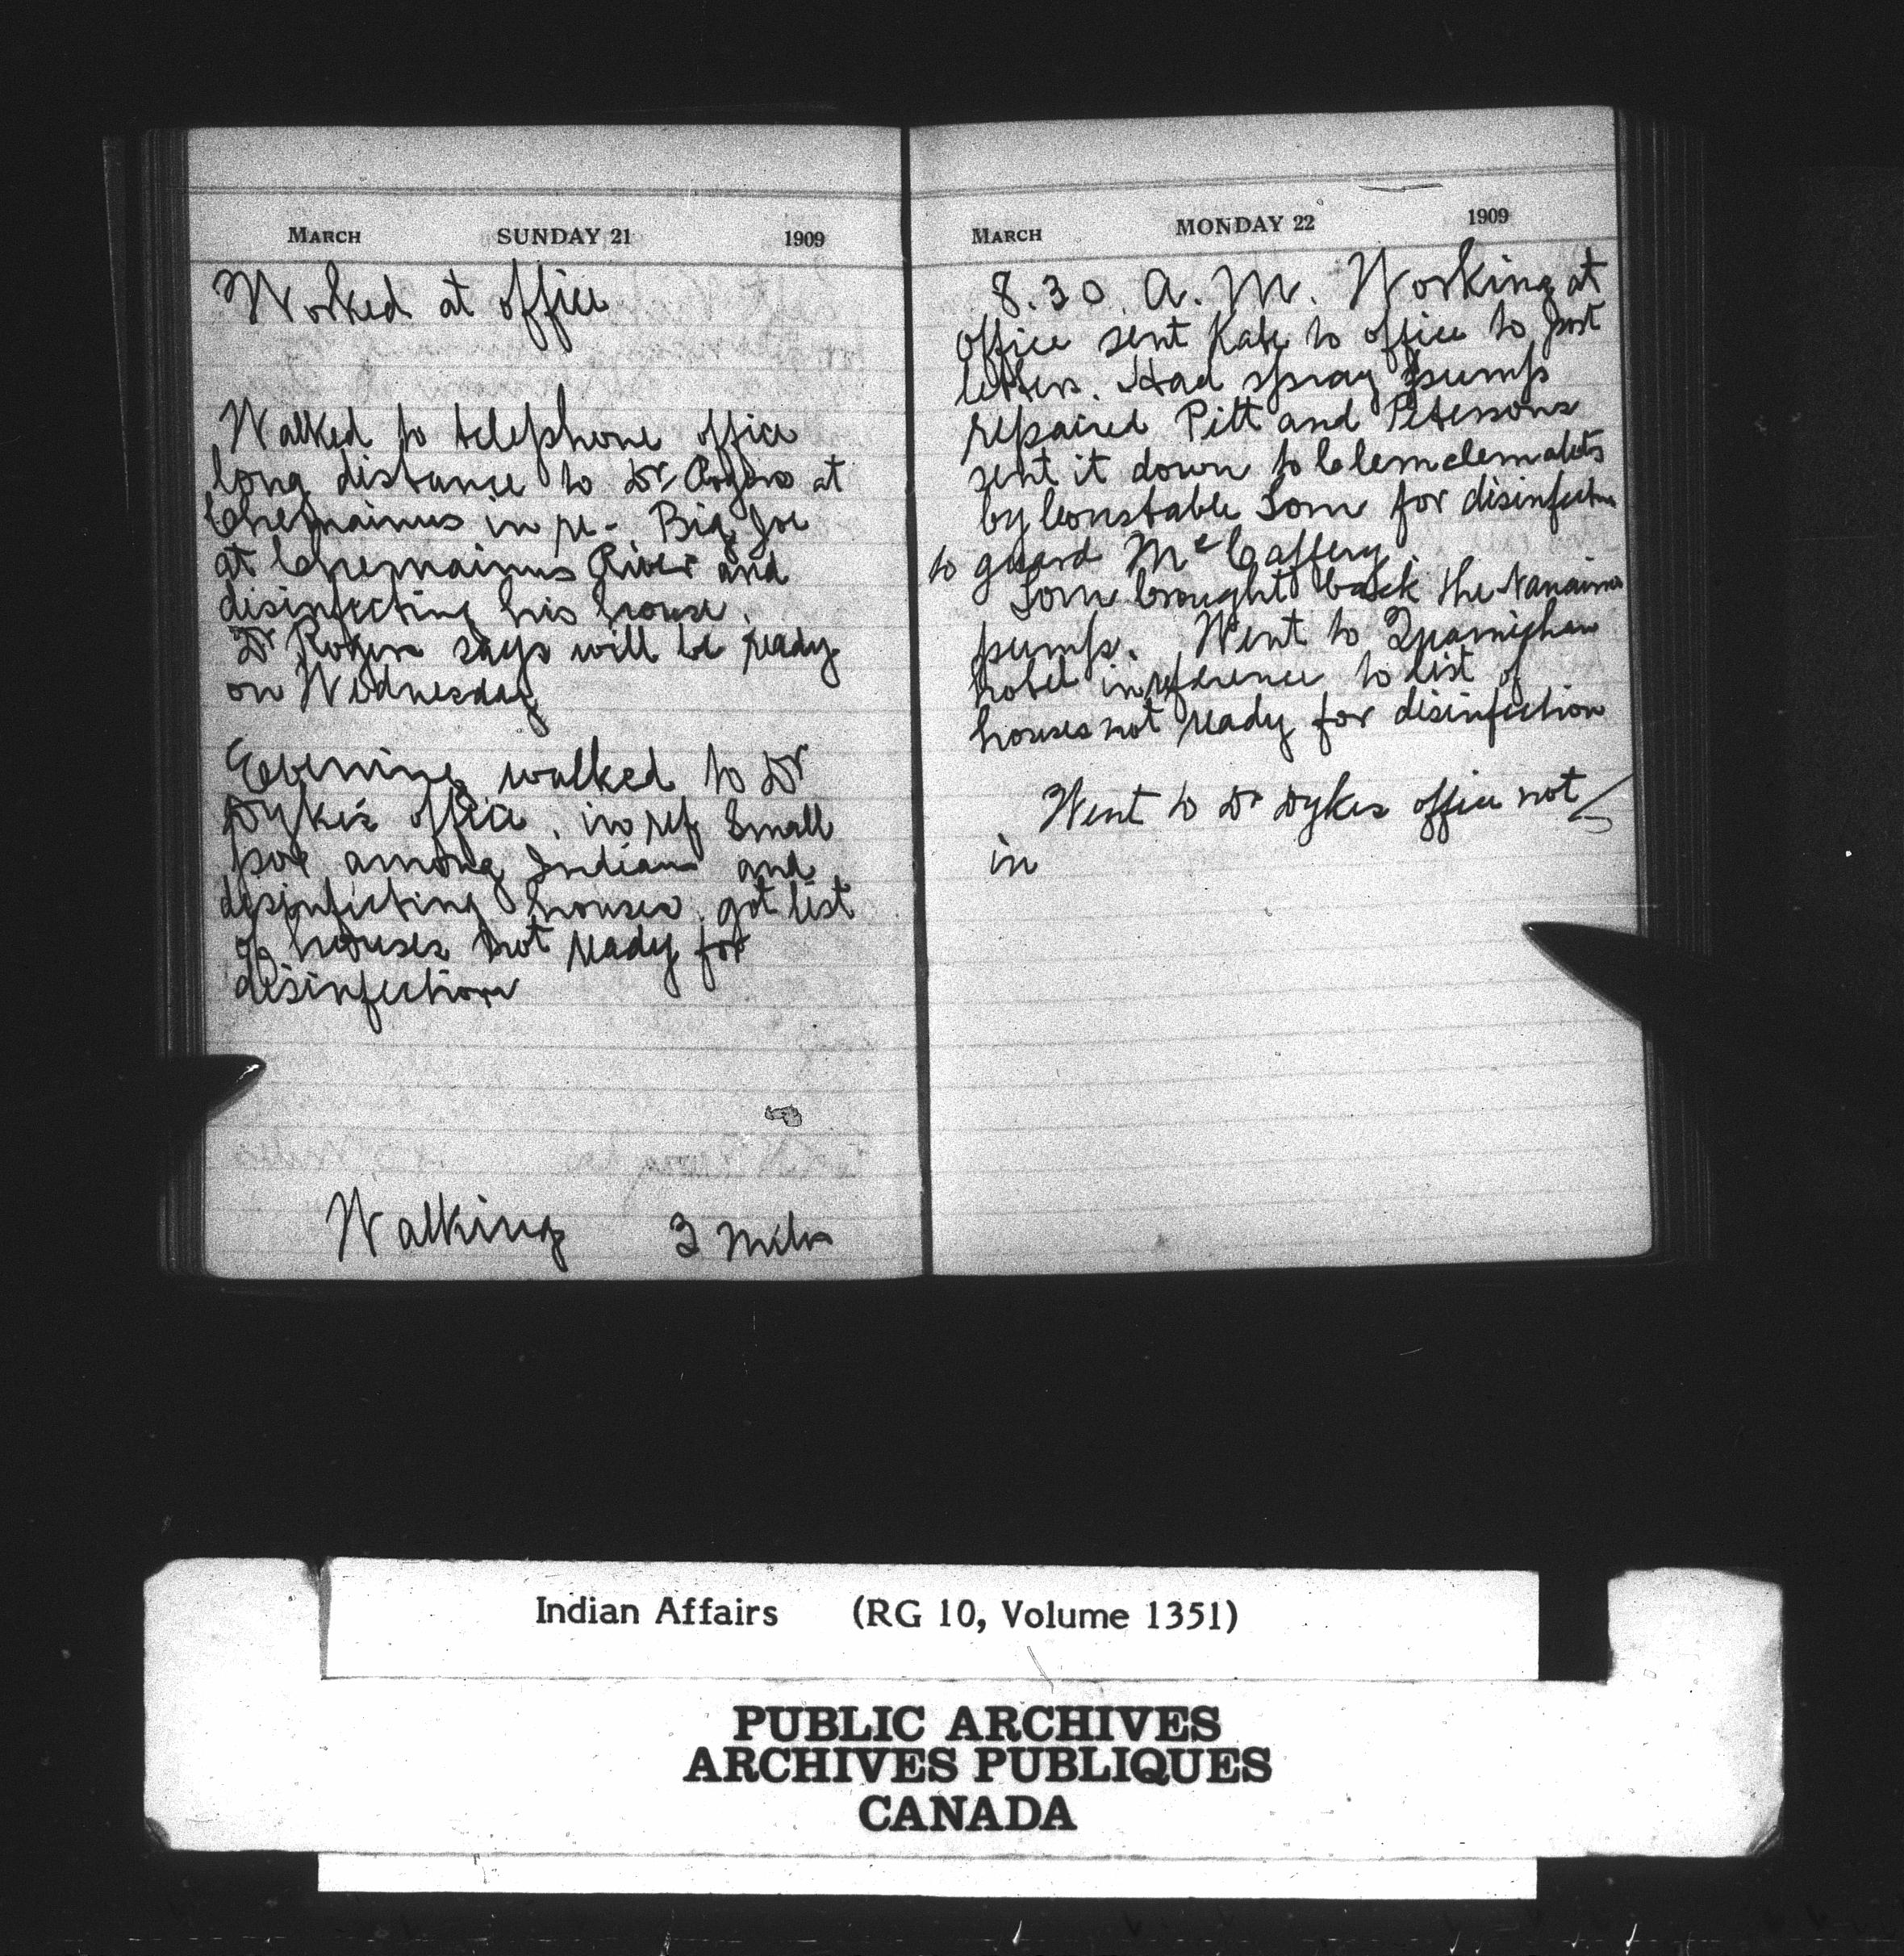 MARCH SUNDAY 21 1909
Worked at office
Walked to telephone office
long distance to Dr Rogers at
Chemainus in re - Big Joe
at Chemainus River and
disinfecting his house.
Dr Rogers says will be ready
on Wednesday
Evening walked to Dr
Dykes office, in ref Small
pox among Indians and
disinfecting houses. got list
of houses not ready for
disinfection
Walking 3 miles
MARCH MONDAY 22 1909
8.30. A.M. Working at
office sent Kate to office to post
letters. Had spray pump
repaired Pitt and Petersons
sent it down to Clemclemalets
by Constable Tom for disinfection
to guard McCaffery.
Tom brought back the Nanaimo
pump. Went to Quamichan
hotel in reference to list of
houses not ready for disinfection
Went to Dr Dykes office not
in
Indian Affairs (RG 10, Volume 1351)
PUBLIC ARCHIVES
ARCHIVES PUBLIQUES
CANADA